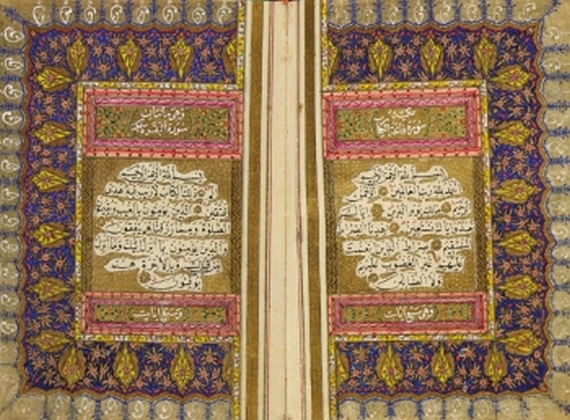 سورة فاتحة الكتاب
بسم الله الرحمن الرحيم
الحمد لله رب العالمين الرحمن
الرحيم مالك يوم الدين إياك نعبد
وإياك نستعين اهدنا الصراط
المستقيم صراط الذين أنعمت
عليهم غير المغضوب عليهم
ولا الضالين
وهي سبع آيات
وهي مائتان
سورة البقرة
بسم الله الرحمن الرحيم
الم ذلك الكتاب لا ريب فيه هدى
للمتقين الذين يؤمنون بالغيب ويقيمون
الصلوة ومما رزقناهم ينفقون
والذين يؤمنون بما أنزل إليك وما أنزل
من قبلك وبالآخرة هم
يوقنون
وسبع آيات